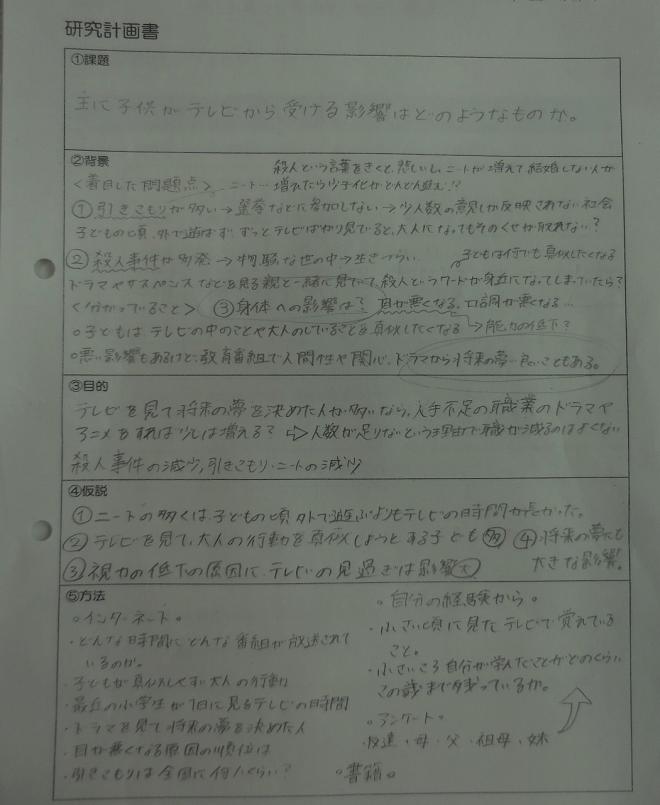 研究計画書
①課題
主に子供がテレビから受ける影響はどのようなものか。
②背景
殺人という言葉をきくと、悲しいし、ニートが増えて結婚しない人が
〈着目した問題点〉 ニート…増えたら少子化がどんどん進む!?
①引きこもりが多い→選挙などに参加しない→少人数の意見しか反映されない社会
子どもの頃、外で遊ばず、ずっとテレビばかり見ていると、大人になってもそのくせが取れない?
②殺人事件が多発→物騒な世の中→生きづらい
子どもは何でも真似したくなる
ドラマやサスペンスなどを見る親と一緒に見ていて、殺人というワードが身近になってしまっていたら?
〈分かっていること〉 ③身体への影響は? 目が悪くなる。口調が悪くなる…
○子どもはテレビの中のことや大人のしていることを真似したくなる →能力の低下?
○悪い影響もあるけど、教育番組で人間性や関心、ドラマから将来の夢…良いこともある。
③目的
テレビを見て将来の夢を決めた人が多いなら、人手不足の職業のドラマや
アニメをすれば少しは増える? ⇨人数が足りないという理由で職が減るのはよくない
殺人事件の減少、引きこもり・ニートの減少
④仮説
①ニートの多くは子どもの頃外で遊ぶよりもテレビの時間が長かった。
②テレビを見て、大人の行動を真似しようとする子ども多 ④将来の夢にも
大きな影響。
③視力の低下の原因に、テレビの見過ぎは影響大
⑤方法
○インターネット○
・どんな時間にどんな番組が放送されて
いるのか。
・子どもが真似しやすい大人の行動
・最近の小学生が1日に見るテレビの時間
・ドラマを見て将来の夢を決めた人
・目が悪くなる原因の順位は
・引きこもりは全国に何人くらい?
○自分の経験から○
・小さい頃に見たテレビで覚えている
こと。
・小さいころ自分が学んだことがどのくらい
この歳まで残っているか。
○アンケート○
・友達・母・父・祖母・妹
○書籍○